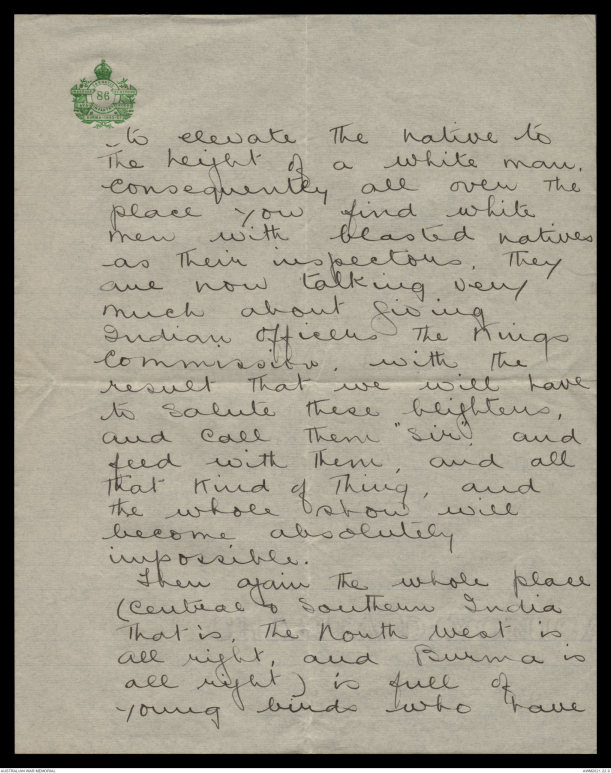 86
to elevate the native to
the height of a white man,
consequently all over the
place you find white
men with blasted natives
as their inspectors. They
are now talking very
much about giving
Indian Officers the Kings
Commission, with the
result that we will have
to salute these blighters,
and call them "Sir" and
feed with them, and all
that kind of thing, and
the whole show will
become absolutely
impossible.
Then again the whole place
(Central & Southern India
that is, the North West is
all right, and Burma is
all right) is full of
young birds who have
AUSTRALIAN WAR MEMORIAL